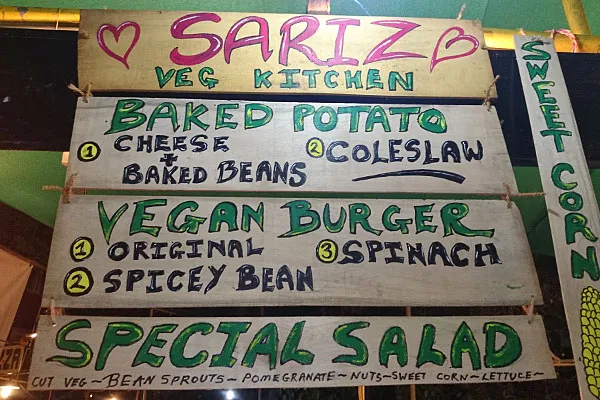 SARIZ
VEG KITCHEN
BAKED POTATO
1 CHEESE + BAKED BEANS
2 COLESLAW
VEGAN BURGER
1 ORIGINAL
2 SPICEY BEAN
3 SPINACH
SPECIAL SALAD
CUT VEG~BEAN SPROUTS~POMEGRANATE~NUTS~SWEET CORN~LETTUCE~
SWEET CORN